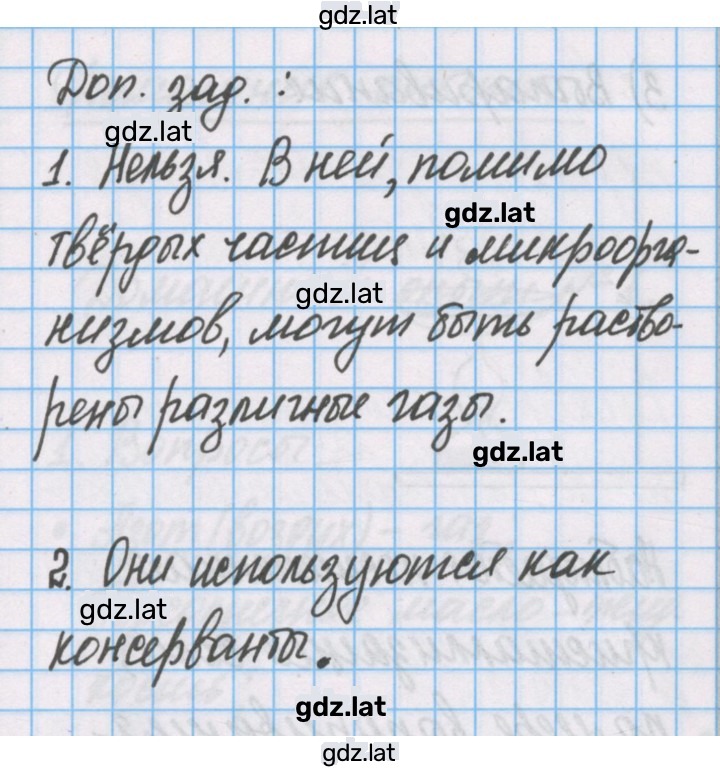 gdz.lat
Доп. зад. :
gdz.lat
1. Нельзя. В ней, помимо
gdz.lat
твёрдых частиц и микроорга-
gdz.lat
низмов, могут быть раство-
рены различные газы.
gdz.lat
2. Они используются как
gdz.lat
консерванты.
gdz.lat
gdz.lat